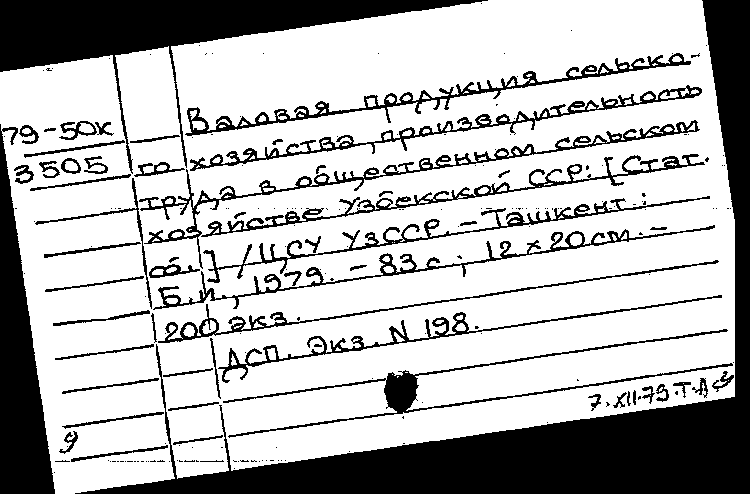 79-50к
3505
Валовая продукция сельско-
го хозяйства, производительность
труда в общественном сельском
хозяйстве Узбекской ССР: [Стат.
сб.] / ЦСУ УзССР. - Ташкент.:
Б.и., 1979. - 83 с.; 12 x 20 см. -
200 экз.
ДСП. Экз. N 198.
7.XII.79.Т.А
9